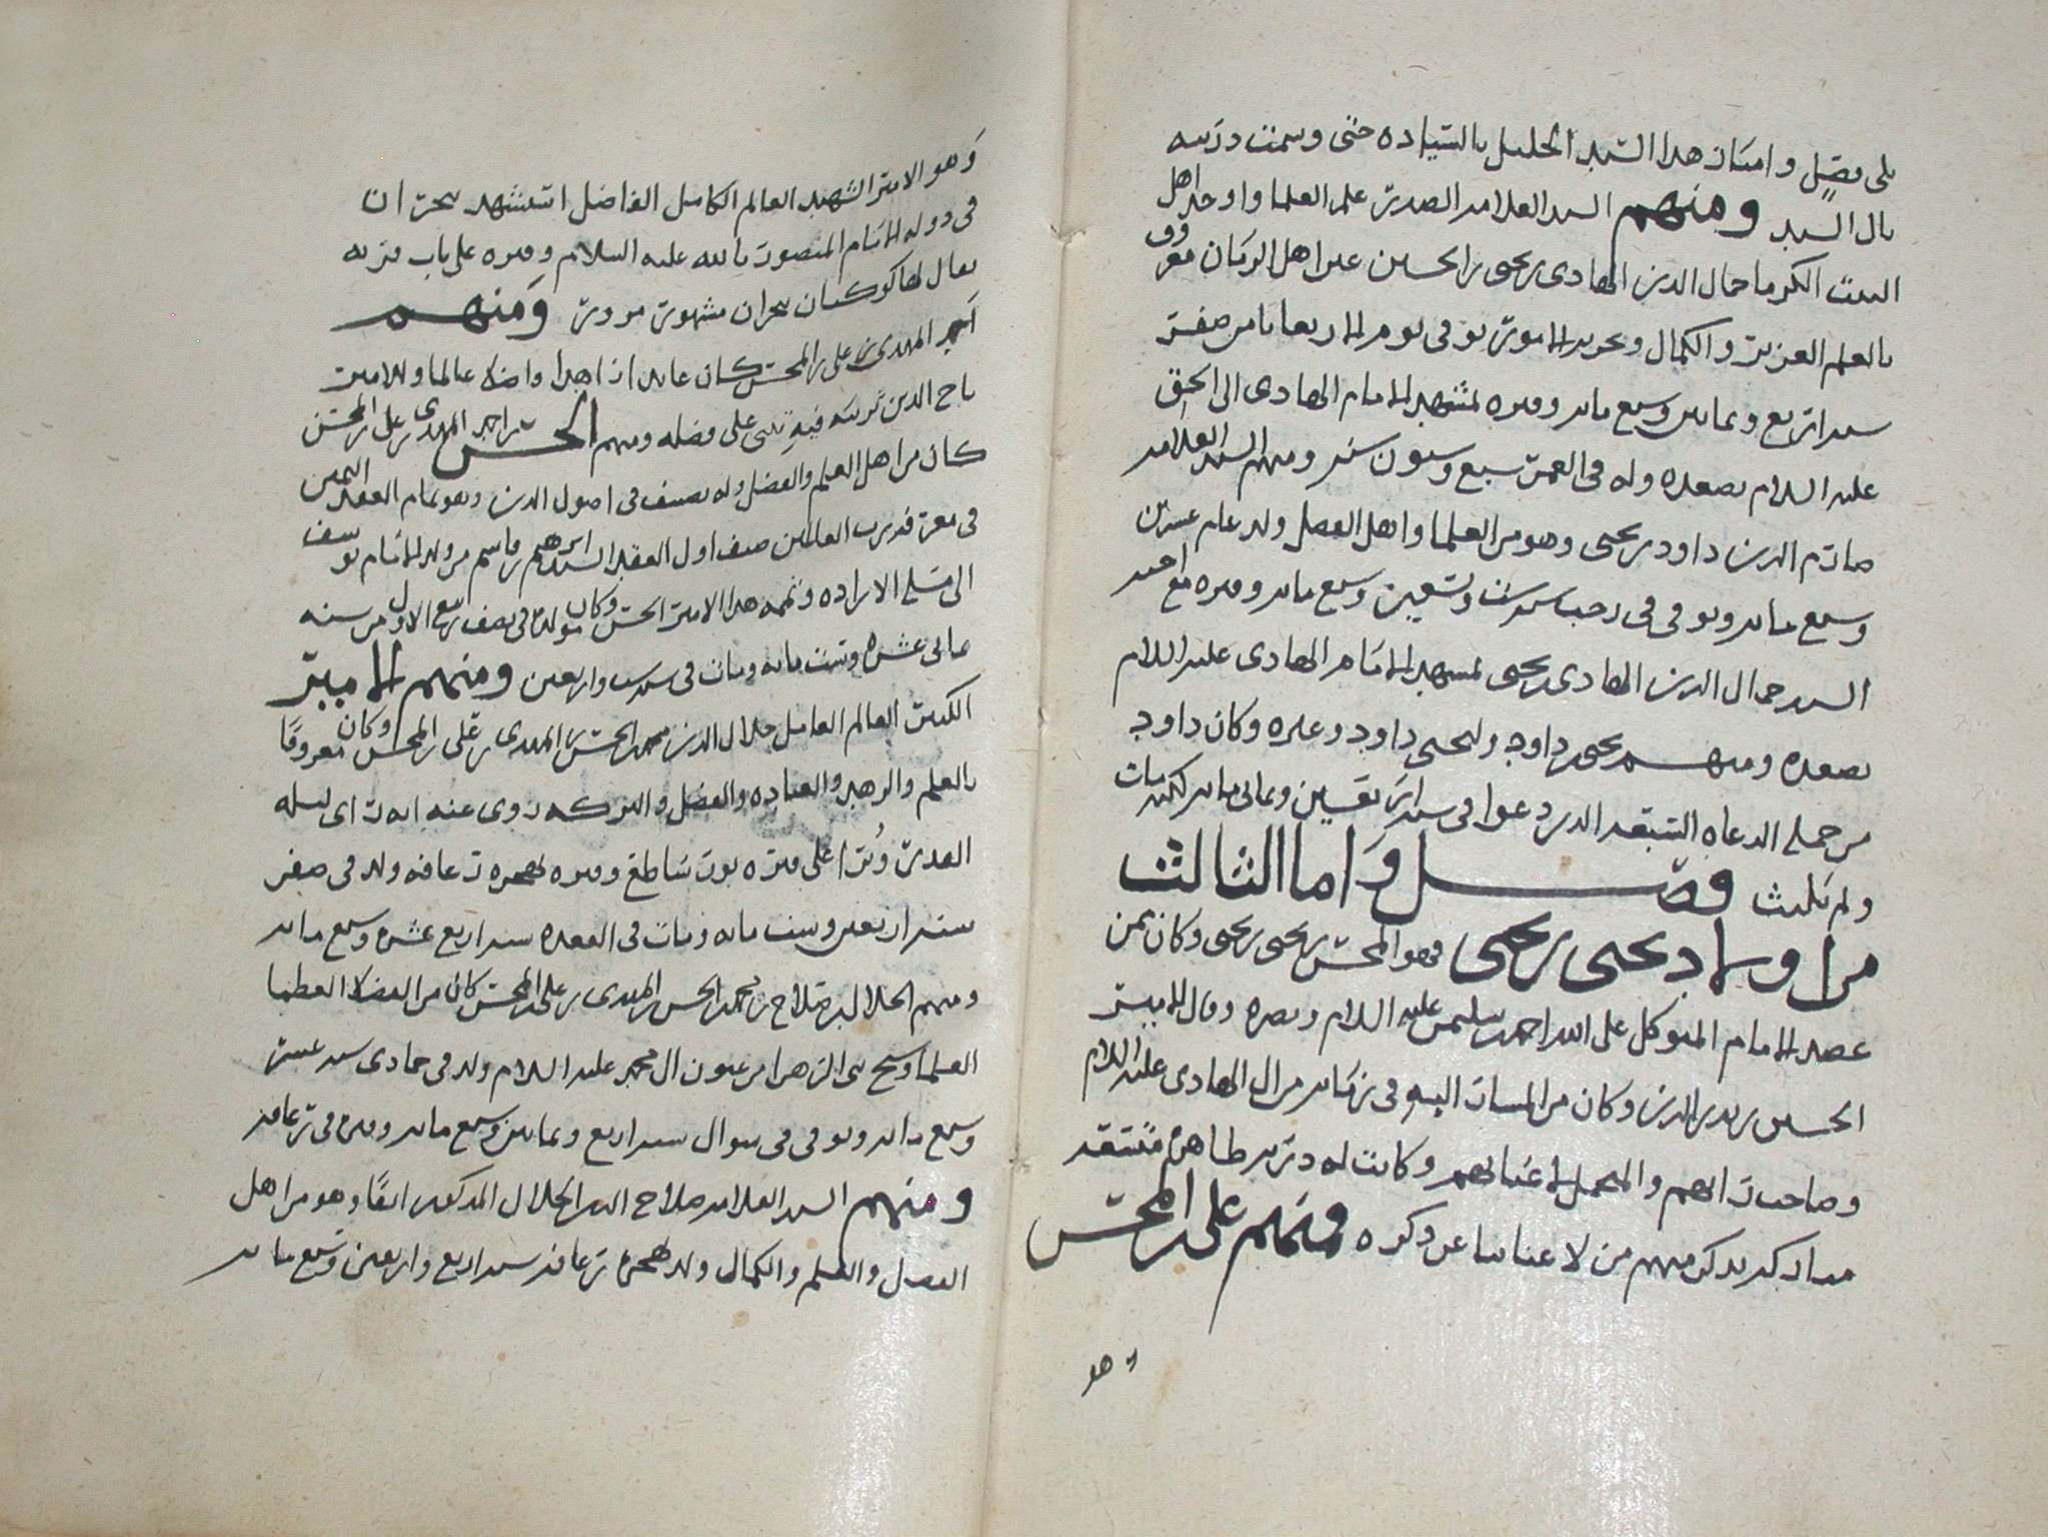 بلى فضل وامتاز هذا السيد الجليل بالسياده حتى وسمت ذريته
بال السيد ومنهم السيد العلامه الصدر علم العلما واوحد اهل
البيت الكرما جمال الدين الهادى بن يحيى بن الحسين عين اهل الزمان معروف
بالعلم الغزير والكمال وتوفى يوم الاربعا ثامن صفر
سنه اربع وثمانين وسبع مائه وقبره بمشهد الامام الهادى الى الحق
عليه السلام بصعده وله فى العمر سبع وسبعون سنه ومنهم السيد العلامه
صارم الدين داود بن يحيى وهو من العلما واهل الفضل ولد عام عشرين
وسبع مائه وتوفى فى رجب سنه ست وتسعين وسبع مائه وقبره مع اخيه
السيد جمال الدين الهادى بن يحيى بمشهد الامام الهادى عليه السلام
بصعده ومنهم يحيى بن داود وليحيى داود وغيره وكان داود
من جمله الدعاه السبعه الذين دعوا فى سنه اربعين وثمانى مائه لكنه مات
ولم يلبث فصل واما الثالث
من اولاد يحيى بن يحيى فهو المحسن بن يحيى بن يحيى وكان ممن
عضد الامام المتوكل على الله احمد بن سليمن عليه السلام ونصره وقال الامير
الحسين بن بدر الدين وكان من المشار اليه فى زمانه من ال الهادى عليه السلام
وصاحب رايهم والمتحمل لاعبائهم وكانت له ذريه طاهره منتقد
مباركه يذكر منهم من لا غنا بنا عن ذكره ومنهم على بن المحسن
وهو
وهو الامير الشهيد العالم الكامل الفاضل استشهد بنجران
فى دوله الامام المنصور بالله عليه السلام وقبره على باب قريه
يقال لها كوكبان بنجران مشهور مزور ومنهم
احمد المهدى بن على بن المحسن كان عابدا زاهدا فاضلا عالما وللامير
تاج الدين مرثيه فيه تنبى على فضله ومنهم الحسن بن احمد المهدى بن على بن المحسن
كان من اهل العلم والفضل وله تصنيف فى اصول الدين وهو تمام العقد الثمين
فى معرفه رب العالمين صنف اول العقد السيد ابرهيم بن قاسم من ولد الامام يوسف
الى مسله الاراده وتممه هذا الامير الحسن وكان مولده فى نصف ربيع الاول من سنه
ثمانى عشره وست مائه ومات فى سنه ست واربعين ومنهم الامير
الكبير العالم العامل جلال الدين محمد بن الحسن بن المهدى بن على بن المحسن وكان معروفا
بالعلم والزهد والعباده والفضل والبركه روى عنه انه راى ليله
القدر ونرا على قبره نور ساطع وقبره بهجره رغافه ولد فى صفر
سنه اربعين وست مائه ومات فى القعده سنه اربع عشره وسبع مائه
ومنهم الجلال بن صلاح بن محمد بن الحسن بن المهدى بن على بن المحسن كان من الفضلا العظما
العلما وشيخ بنى الزهرا من عيون ال محمد عليه السلام ولد فى جمادى سنه عشر
وسبع مائه وتوفى فى شوال سنه اربع وثمانين وسبع مائه وقبره فى رغافه
ومنهم السيد العلامه صلاح الدين بن الجلال المذكور انفا وهو من اهل
الفضل والعلم والكمال ولد بهجره رغافه سنه اربع واربعين وسبع مائه